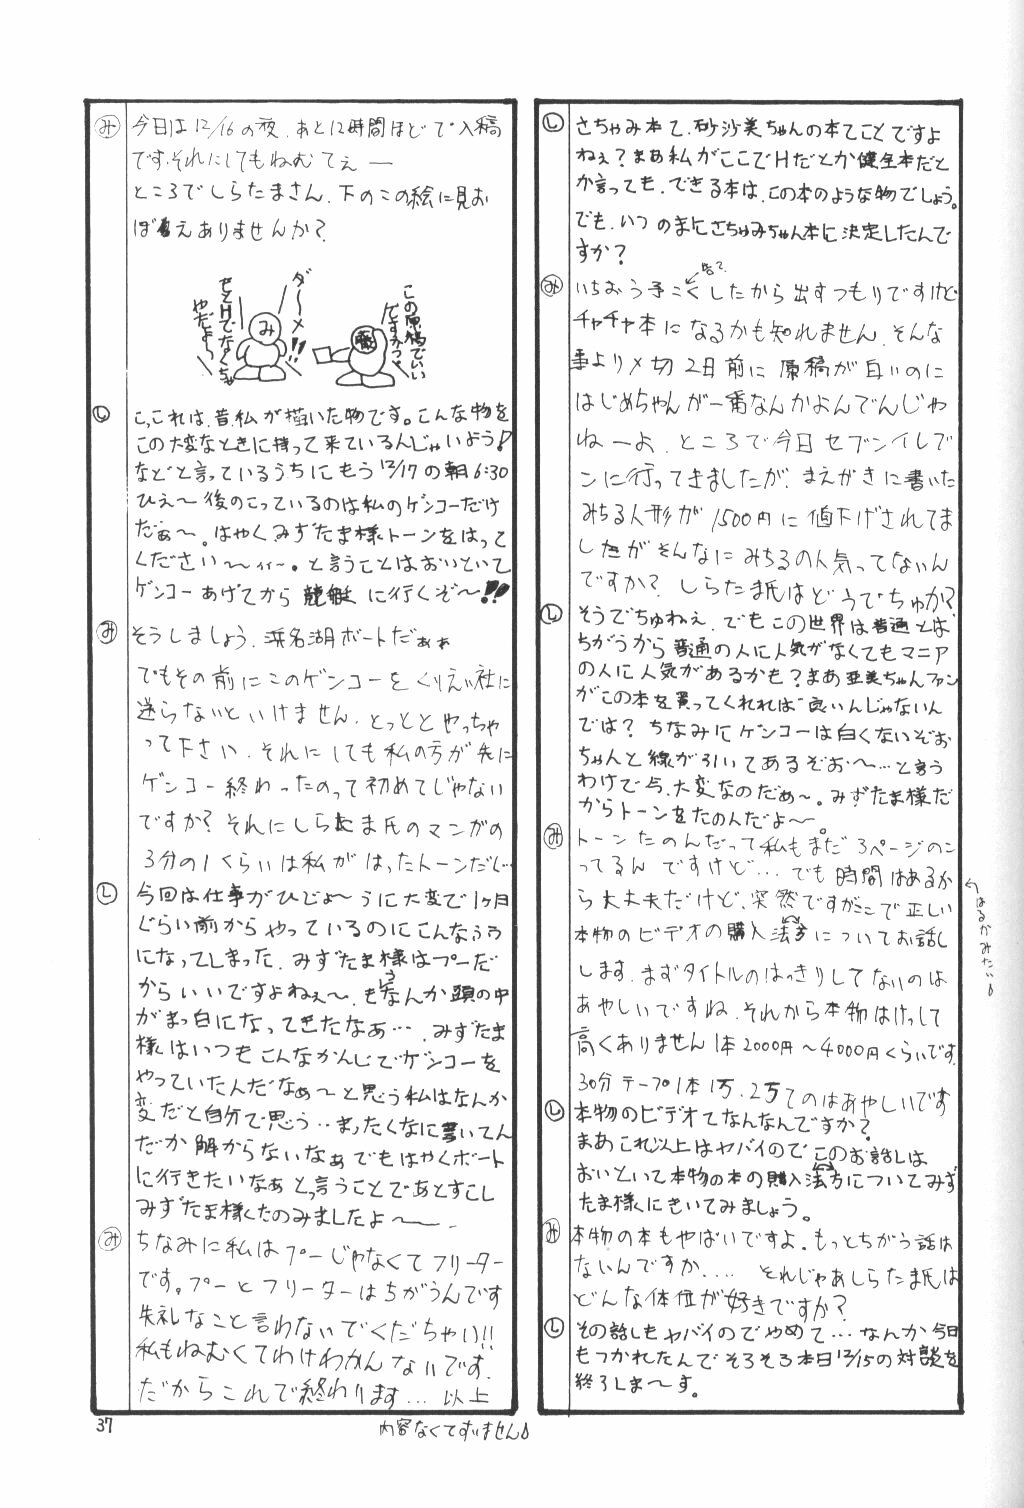 し さちゃみ本て、砂沙美ちゃんの本てことですよ
ねぇ？まあ私がここでHだとか健全本だと
か言っても、できる本は、この本のような物でしょう。
でも、いつのまにさちゅみちゃん本に決定したんで
すか？
み いちおう予こくしたから出すつもりですけど
チャチャ本になるかも知れません、そんな
事より〆切2日前に原稿が白いのに
はじめちゃんが一番なんかよんでんじゃ
ねーよ、ところで今日セブンイレブ
ンに行ってきましたが、まえがきに書いた
みちる人形が1500円に値下げされてま
したがそんなにみちるの人気ってないん
ですか？しらたま氏はどうでちゅか？
し そうでちゅねぇ、でもこの世界は普通とは、
ちがうから普通の人に人気がなくてもマニア
の人に人気があるかも？まあ亜美ちゃんファン
がこの本を買ってくれれば良いんじゃないん
では？ちなみにゲンコーは白くないぞお
ちゃんと線が引いてあるぞお〜…と言う
わけで、大変なのだぁ〜。みずたま様だ
からトーンをたのんだよ〜。
み トーンたのんだって私もまだ3ページのこ
ってるんですけど…でも時間はあるか
ら大丈夫だけど、突然ですがここで正しい
本物のビデオの購入法方についてお話し
します、まずタイトルのはっきりしてないのは
あやしいですね、それから本物はけっして
高くありません1本2000円〜4000円くらいです、
30分テープ1本1万、2万てのはあやしいです
し 本物のビデオてなんなんですか？
まあこれ以上はヤバイのでこのお話しは
おいといて本物の本の購入法方についてみず
たま様にきいてみましょう。
み 本物の本もやばいですよ、もっとちがう話は
ないんですか‥‥ それじゃあしらたま氏は
どんな体位が好きですか？
し その話しもヤバイのでやめて…なんか今日
もつかれたんでそろそろ本日12/15の対談を
終了しま〜す。
↰はるかみたい♪
み 今日は12/16の夜、あと12時間ほどで入稿
です、それにしてもねむてぇー
ところでしらたまさん、下のこの絵に見お
ぼえありませんか？
この原稿でいい
ですかっ
ダーメ!!
み
やだよっ
し こ、これは、昔、私が描いた物です。こんな物を
この大変なときに持って来ているんじゃいよう！
などと言っているうちにもう12/17の朝6:30
ひえ〜後のこっているのは私のゲンコーだけ
だぁ〜。はやくみずたま様トーンをはって
ください〜。と言うことはおいといて
ゲンコーあげてから競艇に行くぞ〜!!
み そうしましょう、浜名湖ボートだぁぁ
でもその前にこのゲンコーをくりえい社に
送らないといけません、とっととやっちゃ
って下さい、それにしても私の方が先に
ゲンコー終わったのって初めてじゃない
ですか？それにしらたま氏のマンガの
3分の1くらいは私がはったトーンだし…
し 今回は仕事がひじょ〜うに大変で1ヶ月
ぐらい前からやっているのにこんなふう
になってしまった、みずたま様はプーだ
からいいですよねぇ〜、もうなんか頭の中
がまっ白になってきたなあ…、みずたま
様はいつもこんなかんじでゲンコーを
やっていたんだなぁ〜と思う私はなんか
変だと自分で思う‥まったくなに書いてん
だか解からないなぁでもはやくボート
に行きたいなぁとっ言うことであとすこし
みずたま様くたのみましたよ〜
み ちなみに私はプーじゃなくてフリーター
です。プーとフリーターはちがうんです
失礼なこと言わないでくだちゃい!!
私もねむくてわけわかんないです、
だからこれで終わります…以上
37
内容なくてすいません♪